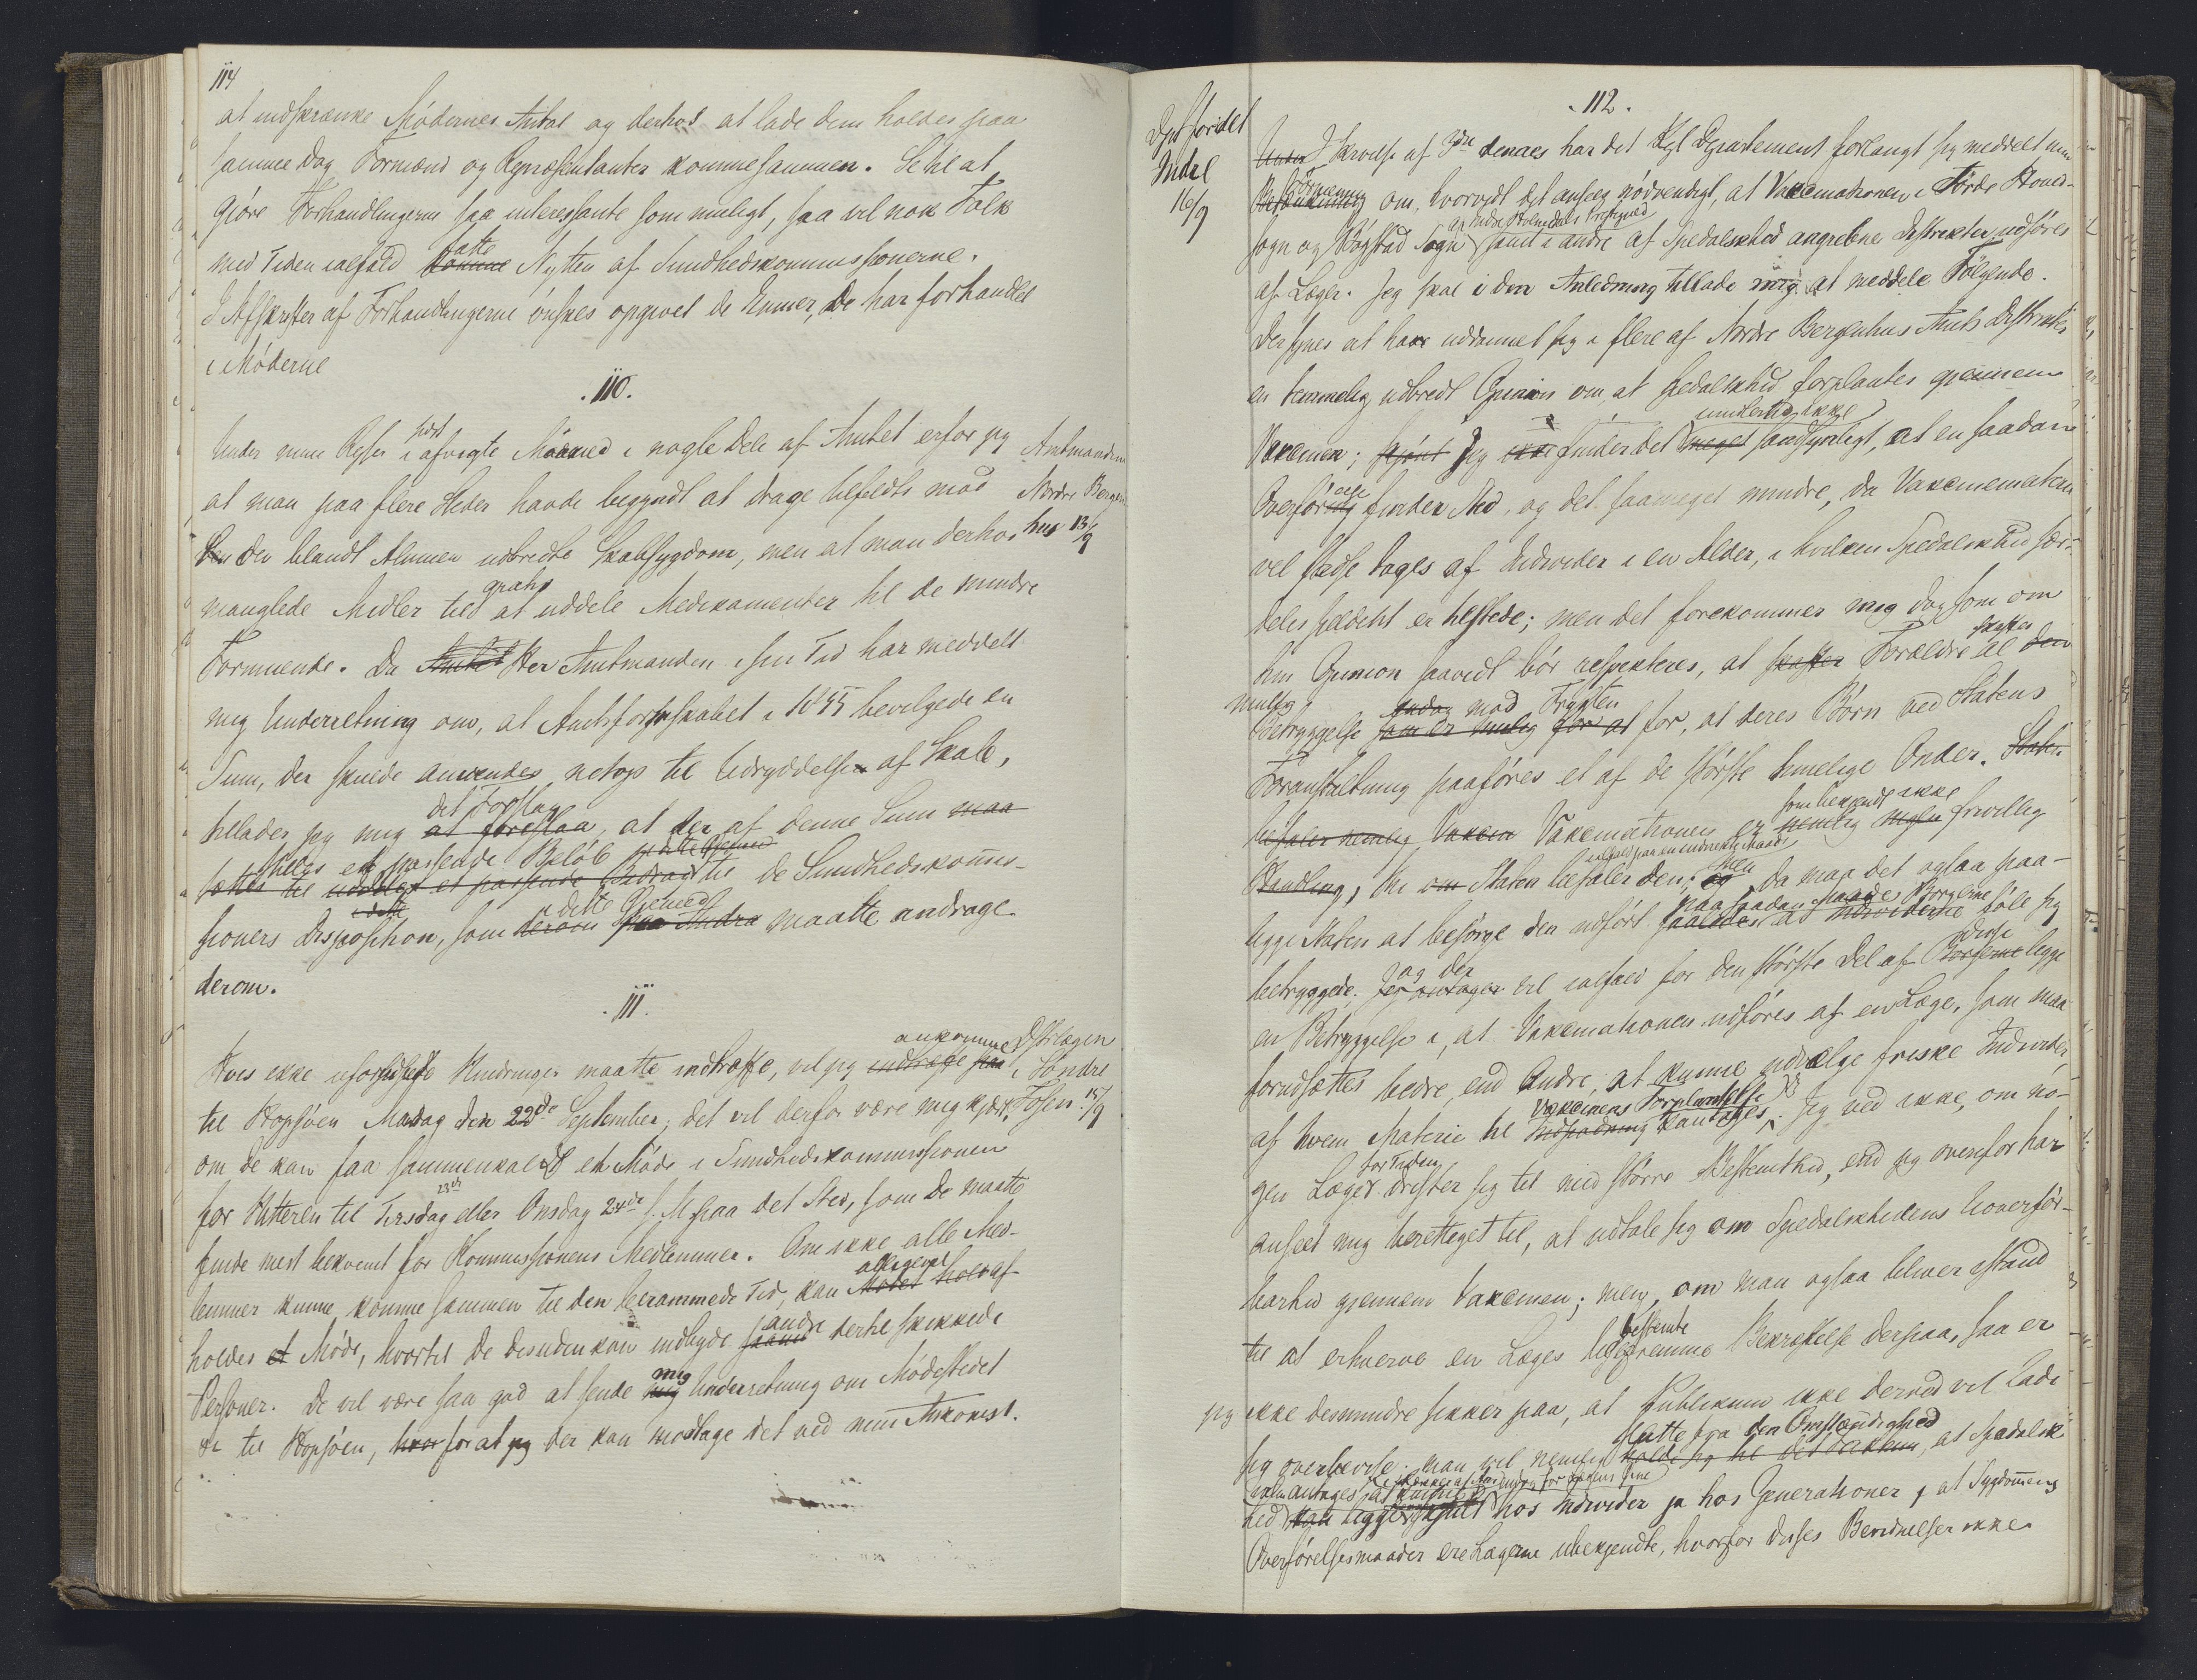 114
at indskrænke Mödernes Antal og derhos at lade dem holdes paa
samme Dag Formænd og Repræsentanter komme sammen. Se til at
gjöre Forhandlingerne saa interessante som muligt, saa vil nok Folk
med Tiden ialfald komme fatte Nytten af Sundhedskommissionerne.
I Afskrifter af Forhandlingerne önskes opgivet de Emner, De har forhandlet
i Möderne
.110.
Amtmanden
Nordre Bergen
hus 13/9
Under min Reise i sidst afvigte Maaned i nogle Dele af Amtet erfor jeg
at man paa flere Steder havde begyndt at drage tilfeldts mod
den den blandt Almuen udbredte Skabsygdom, men at man derhos
manglede Midler til gratis at uddele Medikamenter til de mindre
Formuende. Da Amtet Her Amtmanden i sin Tid har meddelt
mig Underretning om, at Amtsformskabet i 1855 bevilgede en
Sum, der skulde anvendes netop til Udryddelsen af Skab,
tillader jeg mig at foreslaa det Forslag, at der af denne Sum maa
sættes til stilles et passende Belöb uddeles et passende Bidrag til de Sundhedskommis-
sioners Disposition, som derom i dette Öiemed paa Andra maatte andrage
derom.
.111.
Distrlægen
i Söndre
Fosen 15/9
Hvis ikke uforudsete Hindringer maatte indtræffe, vil jeg indtræffe paa ankomme
til Hopsjöen Mandag den 22de September; det vil derfor være mig kjært,
om De kan faa sammenkaldt et Möde i Sundhedskommissionen
for Hitteren til Tirsdag 23de eller Onsdag 24de s. M. paa det Sted, som De maatte
finde mest bekvemt for Kommissionens Medlemmer. Om ikke alle Med-
lemmer kunne komme sammen til den berammede Tid, kan Mödet alligevel
holdes et Möde, hvortil De desuden kan indbyde andre dertil skikkede
Personer. De vil være saa god at sende mig Underretning om Mödestedet
til Hopsjöen, hvor for at jeg der kan modtage det ved min Ankomst.
.112.
Dept for det
Indre
16/9
Under I Skrivelse af 3die dennes har det Kgl Departement forlangt sig meddelt min
Betænkning Formening om, hvorvidt det ansees nödvendigt, at Vaccinationen i Förde Hoved-
sogn og Bygstad Sogn af Indre Holmedals Præstegjæld samt i andre af Spedalskhed angrebne Distrikter udföres
af Læger. Jeg skal i den Anledning tillade mig at meddele Fölgende.
Der synes at have uddannet sig i flere af Nordre Bergenhus Amts Distrikter
en temmelig udbredt Opinion om, at Spedalskhed forplantes gjennem
Vaccinen; skjönt Jeg ikke finder det meget imidlertid ikke sandsynligt, at en saadan
Overförelse finder Sted, og det saameget mindre, da Vaccinematerien
vel helst tages af Individer i en Alder, i hvilken Spedalskhed sær-
deles sjeldent er tilstede; men det forekommer mig dog som om
hin Opinion saavidt bör respekteres, at skaffer Forældre skaffes al den
mulig
Betryggelse som er mulig for at mod Frygten for, at deres Börn ved Statens
Foranstaltning paaföres et af de störste timelige Onder. Staten
befaler nemlig Vaccin Vaccinationen er nemlig ingen som bekjendt ikke frivillig
Handling, thi om Staten befaler den, ialfald paa en indirekte Maade; og men da maa det ogsaa paa-
ligge Staten at besörge den udfört saaledes at Individerne paa saadan Maade at Borgerne föle sig
betryggede. Jeg antager og der vil ialfald for den störste Del af Borgerne disse ligge
en Betryggelse i, at Vaccinationen udföres af en Læge, som maa
forudsættes bedre, end Andre, at kunne udvælge friske Individer
af hvem Materie til Indpodning Vaccinens Forplantelse kan tages. Jeg ved ikke, om no-
gen Læge for Tiden drister sig til med större Bestemthed, end jeg ovenfor har
anseet mig berettiget til, at udtale sig om Spedalskhedens Uoverför-
barhed gjennem Vaccinen; men, om man ogsaa bliver istand
til at erhverve en Læges bestemte Bekræftelse derpaa, saa er
jeg ikke desmindre sikker paa, at Publikum ikke derved vil lade
sig overbevise; man vil nemlig holde sig til det Faktum slutte fra den Omstændighed, at Spedalsk-
hed kan ligge skjult hos Individer ja hos Generationer, at Sygdommens
Overförelsesmaader ere Lægerne ubekjendte, hvorfor disses Benægtelser ikke